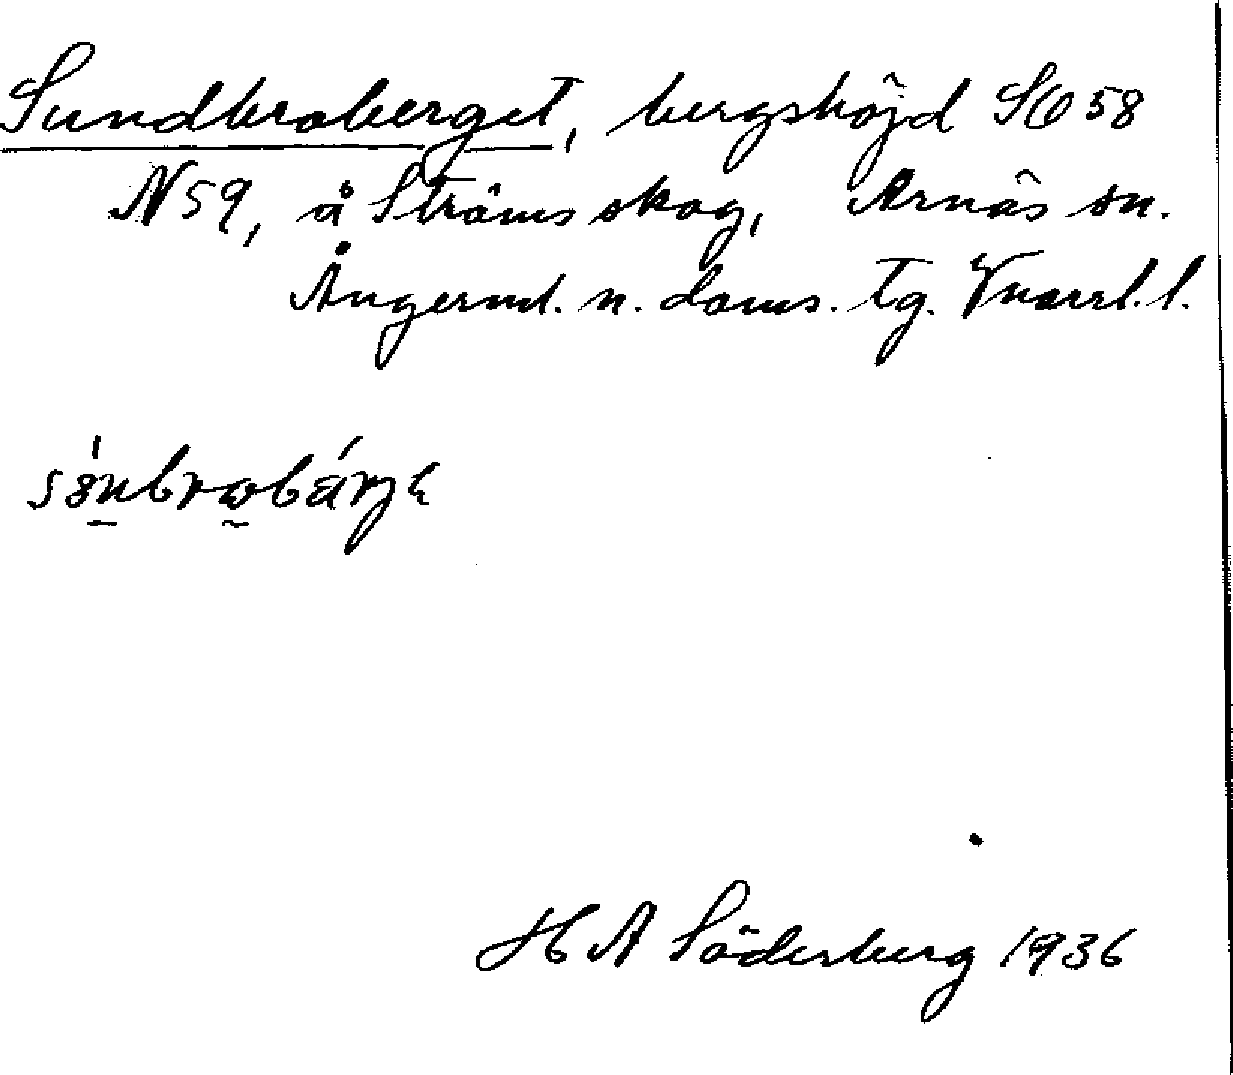 Sundbroberget, bergshöjd SO 58
N 59, å Ströms skog, Arnäs sn.
Ångerml. n. doms. tg. V.norrl. l.
H A Söderberg 1936